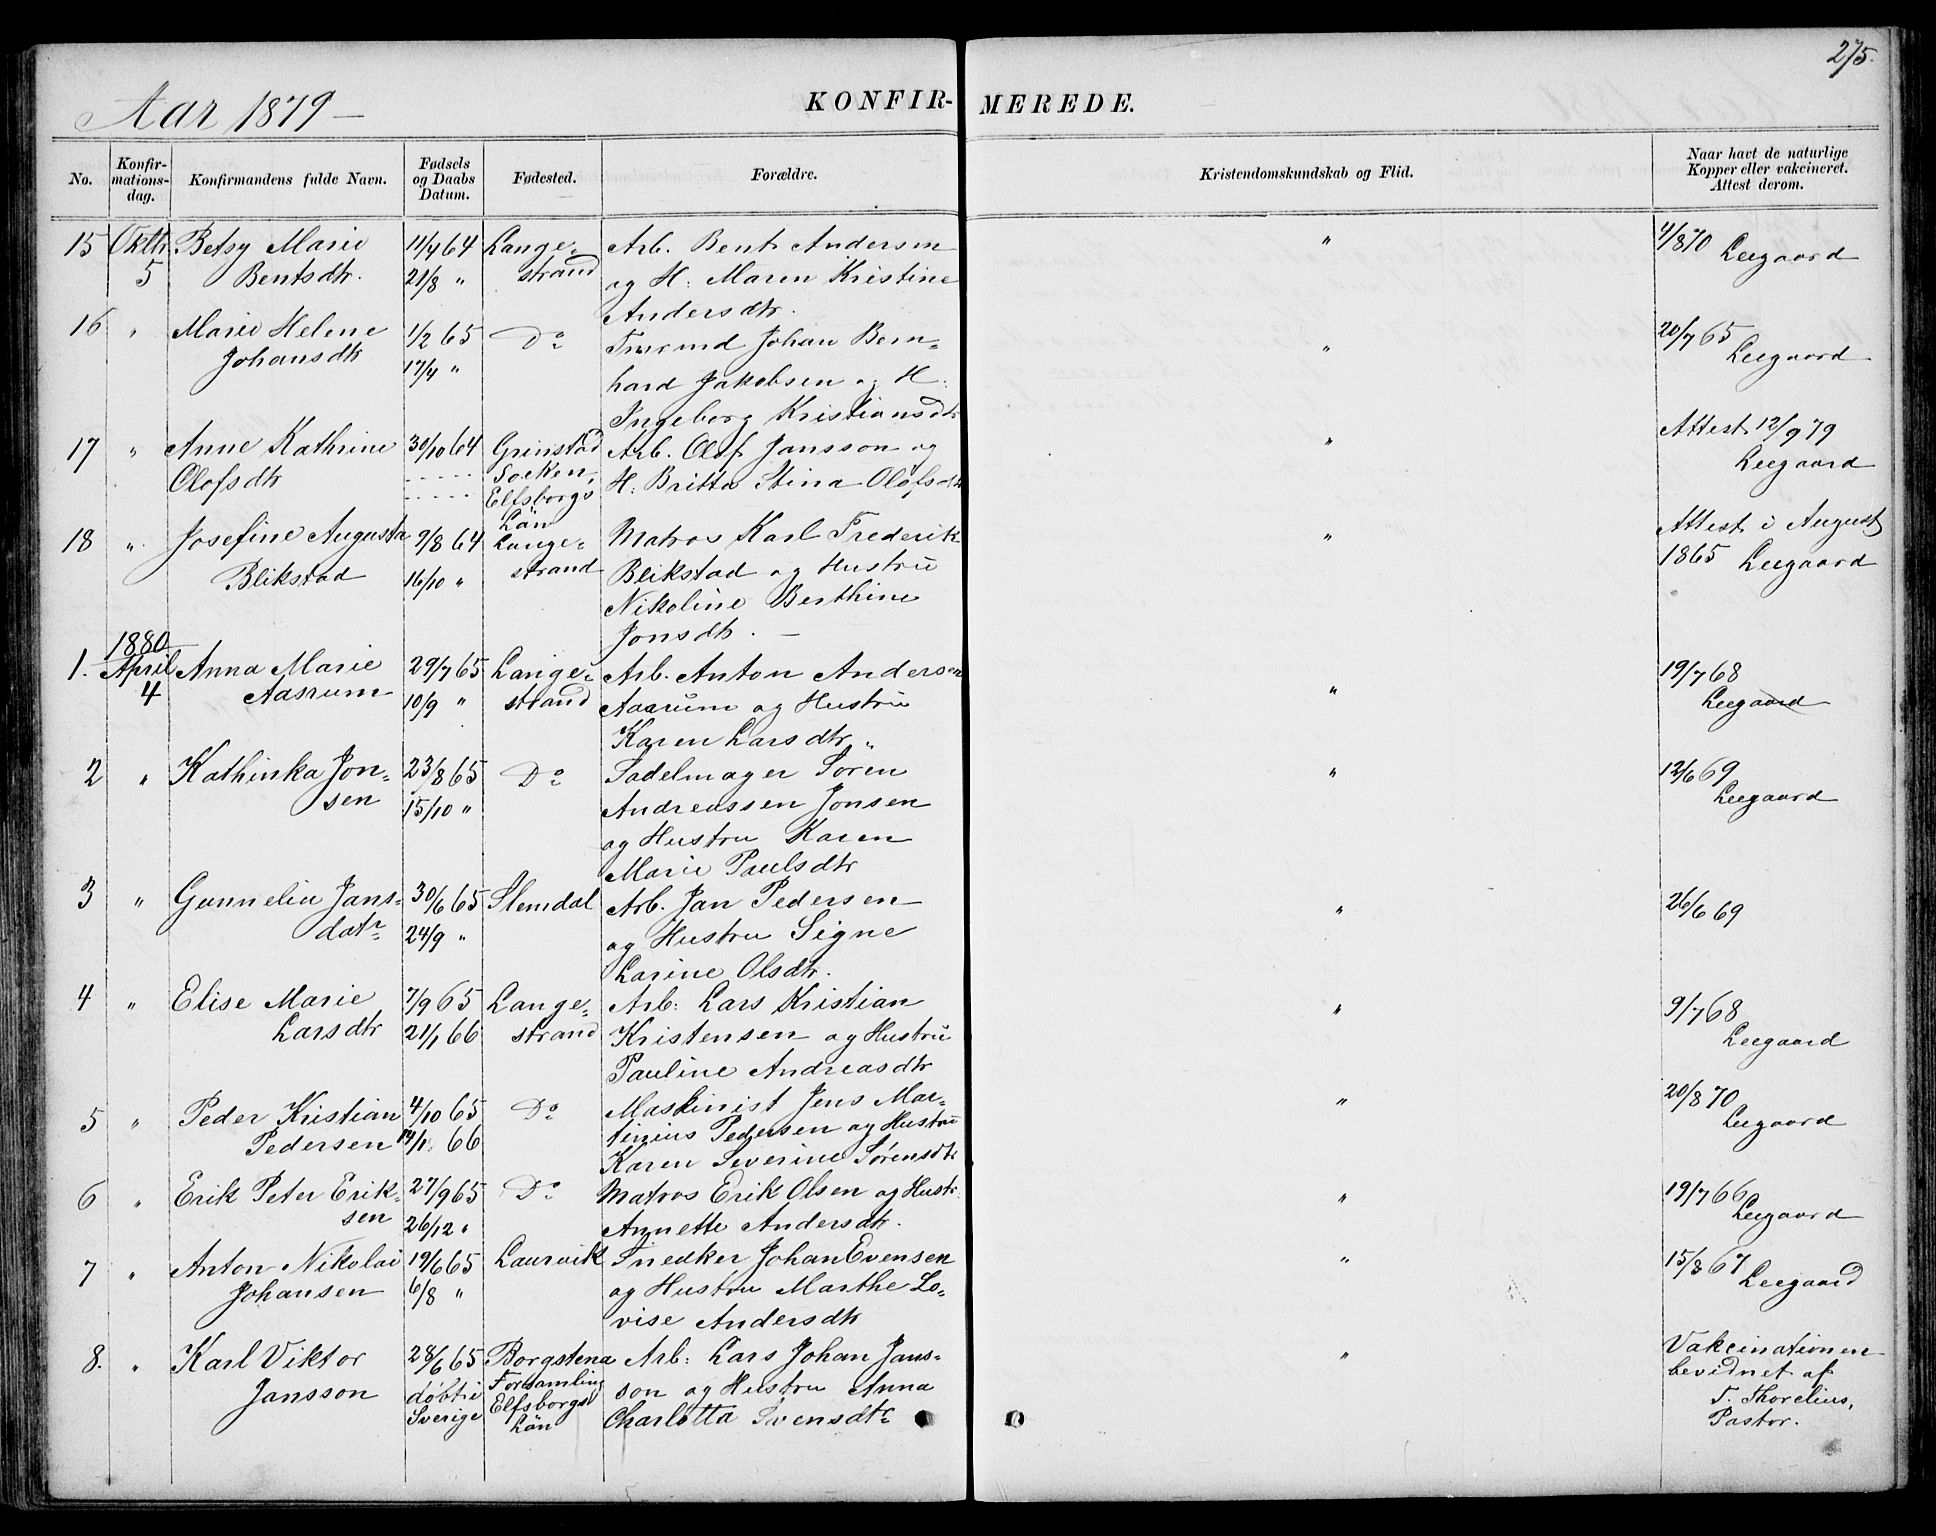 275.
Aar 1879 —
KONFIR-MEREDE.
No. | Konfir-mations-dag. | Konfirmandens fulde Navn. | Fødsels og Daabs Datum. | Fødested. | Forældre. | Kristendomskundskab og Flid. | Naar havt de naturlige Kopper eller vakcineret. Attest derom.
15 Oktbr. Betsy Marie 11/4 64 Lange- Arb. Bent Andersen " 4/8 70 Leegaard
5 Bentsdtr. 21/8 " strand og H. Maren Kristine
Andersdtr.
16 " Marie Helene 1/2 65 Do Tmrmd Johan Bern- " 20/7 65
Johansdtr 17/4 " hard Jakobsen og H. Leegaard
Ingeborg Kristiansdtr
17 " Anne Kathrine 30/10 64 Grinstad Arb. Olof Jansson og " Attest 12/9 79
Olofsdtr Socken, H. Britta Stina Olofsdtr Leegaard
Elfsborgs
Län
18 " Josefine Augusta 9/8 64 Lange- Matros Karl Frederik " Attest i August
Blikstad 16/10 " strand Blikstad og Hustru 1865 Leegaard
Nikoline Berthine
Jonsdtr. —
1880
1. April Anna Marie 29/7 65 Lange- Arb. Anton Andersen " 19/7 68
4 Aasrum 10/9 " strand Aasrum og Hustru Leegaard
Karen Larsdtr "
2 " Kathinka Jon- 23/8 65 Do Sadelmager Søren " 12/6 69
sen 15/10 " Andreassen Jonsen Leegaard
og Hustru Karen
Marie Paulsdtr
3 " Gunnelia Jans- 30/6 65 Slemdal Arb. Jan Pedersen " 26/6 69
datr 24/9 " og Hustru Signe
Larine Olsdtr.
4 " Elise Marie 7/9 65 Lange- Arb: Lars Kristian " 9/7 68
Larsdtr 21/1 66 strand Kristensen og Hustru Leegaard
Pauline Andreasdtr
5 " Peder Kristian 4/10 65 Do Maskinist Jens Mar- " 20/8 70
Pedersen 14/1 66 tinius Pedersen og Hustru Leegaard
Karen Severine Sørensdtr
6 " Erik Peter Erik- 27/9 65 Do Matros Erik Olsen og Hustr. " 19/7 66
sen 26/12 " Annette Andersdtr. Leegaard
7 " Anton Nikolai 19/6 65 Laurvik Snedker Johan Evensen " 15/8 67
Johansen 6/8 " og Hustru Marthe Lo- Leegaard
vise Andersdtr
8. " Karl Viktor 28/6 65 Borgstena Arb: Lars Johan Jans- " Vakcinationen
Jansson døbt i Forsamling son og Hustru Anna bevidnet af
Sverige Elfsborgs Charlotta Svensdtr T. Thorelius,
Län Pastor.